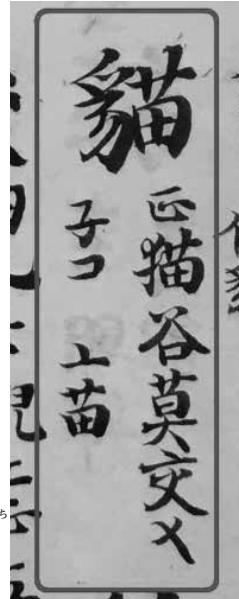 貓
正猫谷莫交メ
子コ 上苗
ち